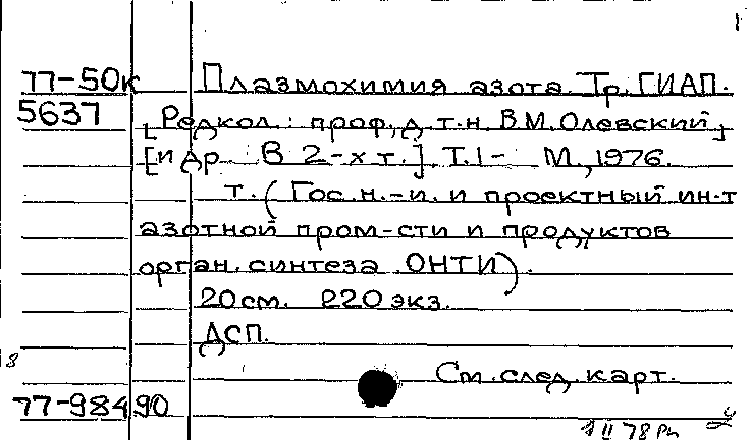 77-50к Плазмохимия азота. Тр. ГИАП.
5637 [Редкол.: проф., д.т.н. В.М. Олевский]
[и др. В 2-х т.]. Т.1- М., 1976.
т. (Гос. н.-и. и проектный ин-т
азотной пром-сти и продуктов
орган. синтеза. ОНТИ).
20 см. 220 экз.
ДСП.
8
См. след. карт.
77-98490
1 II 78